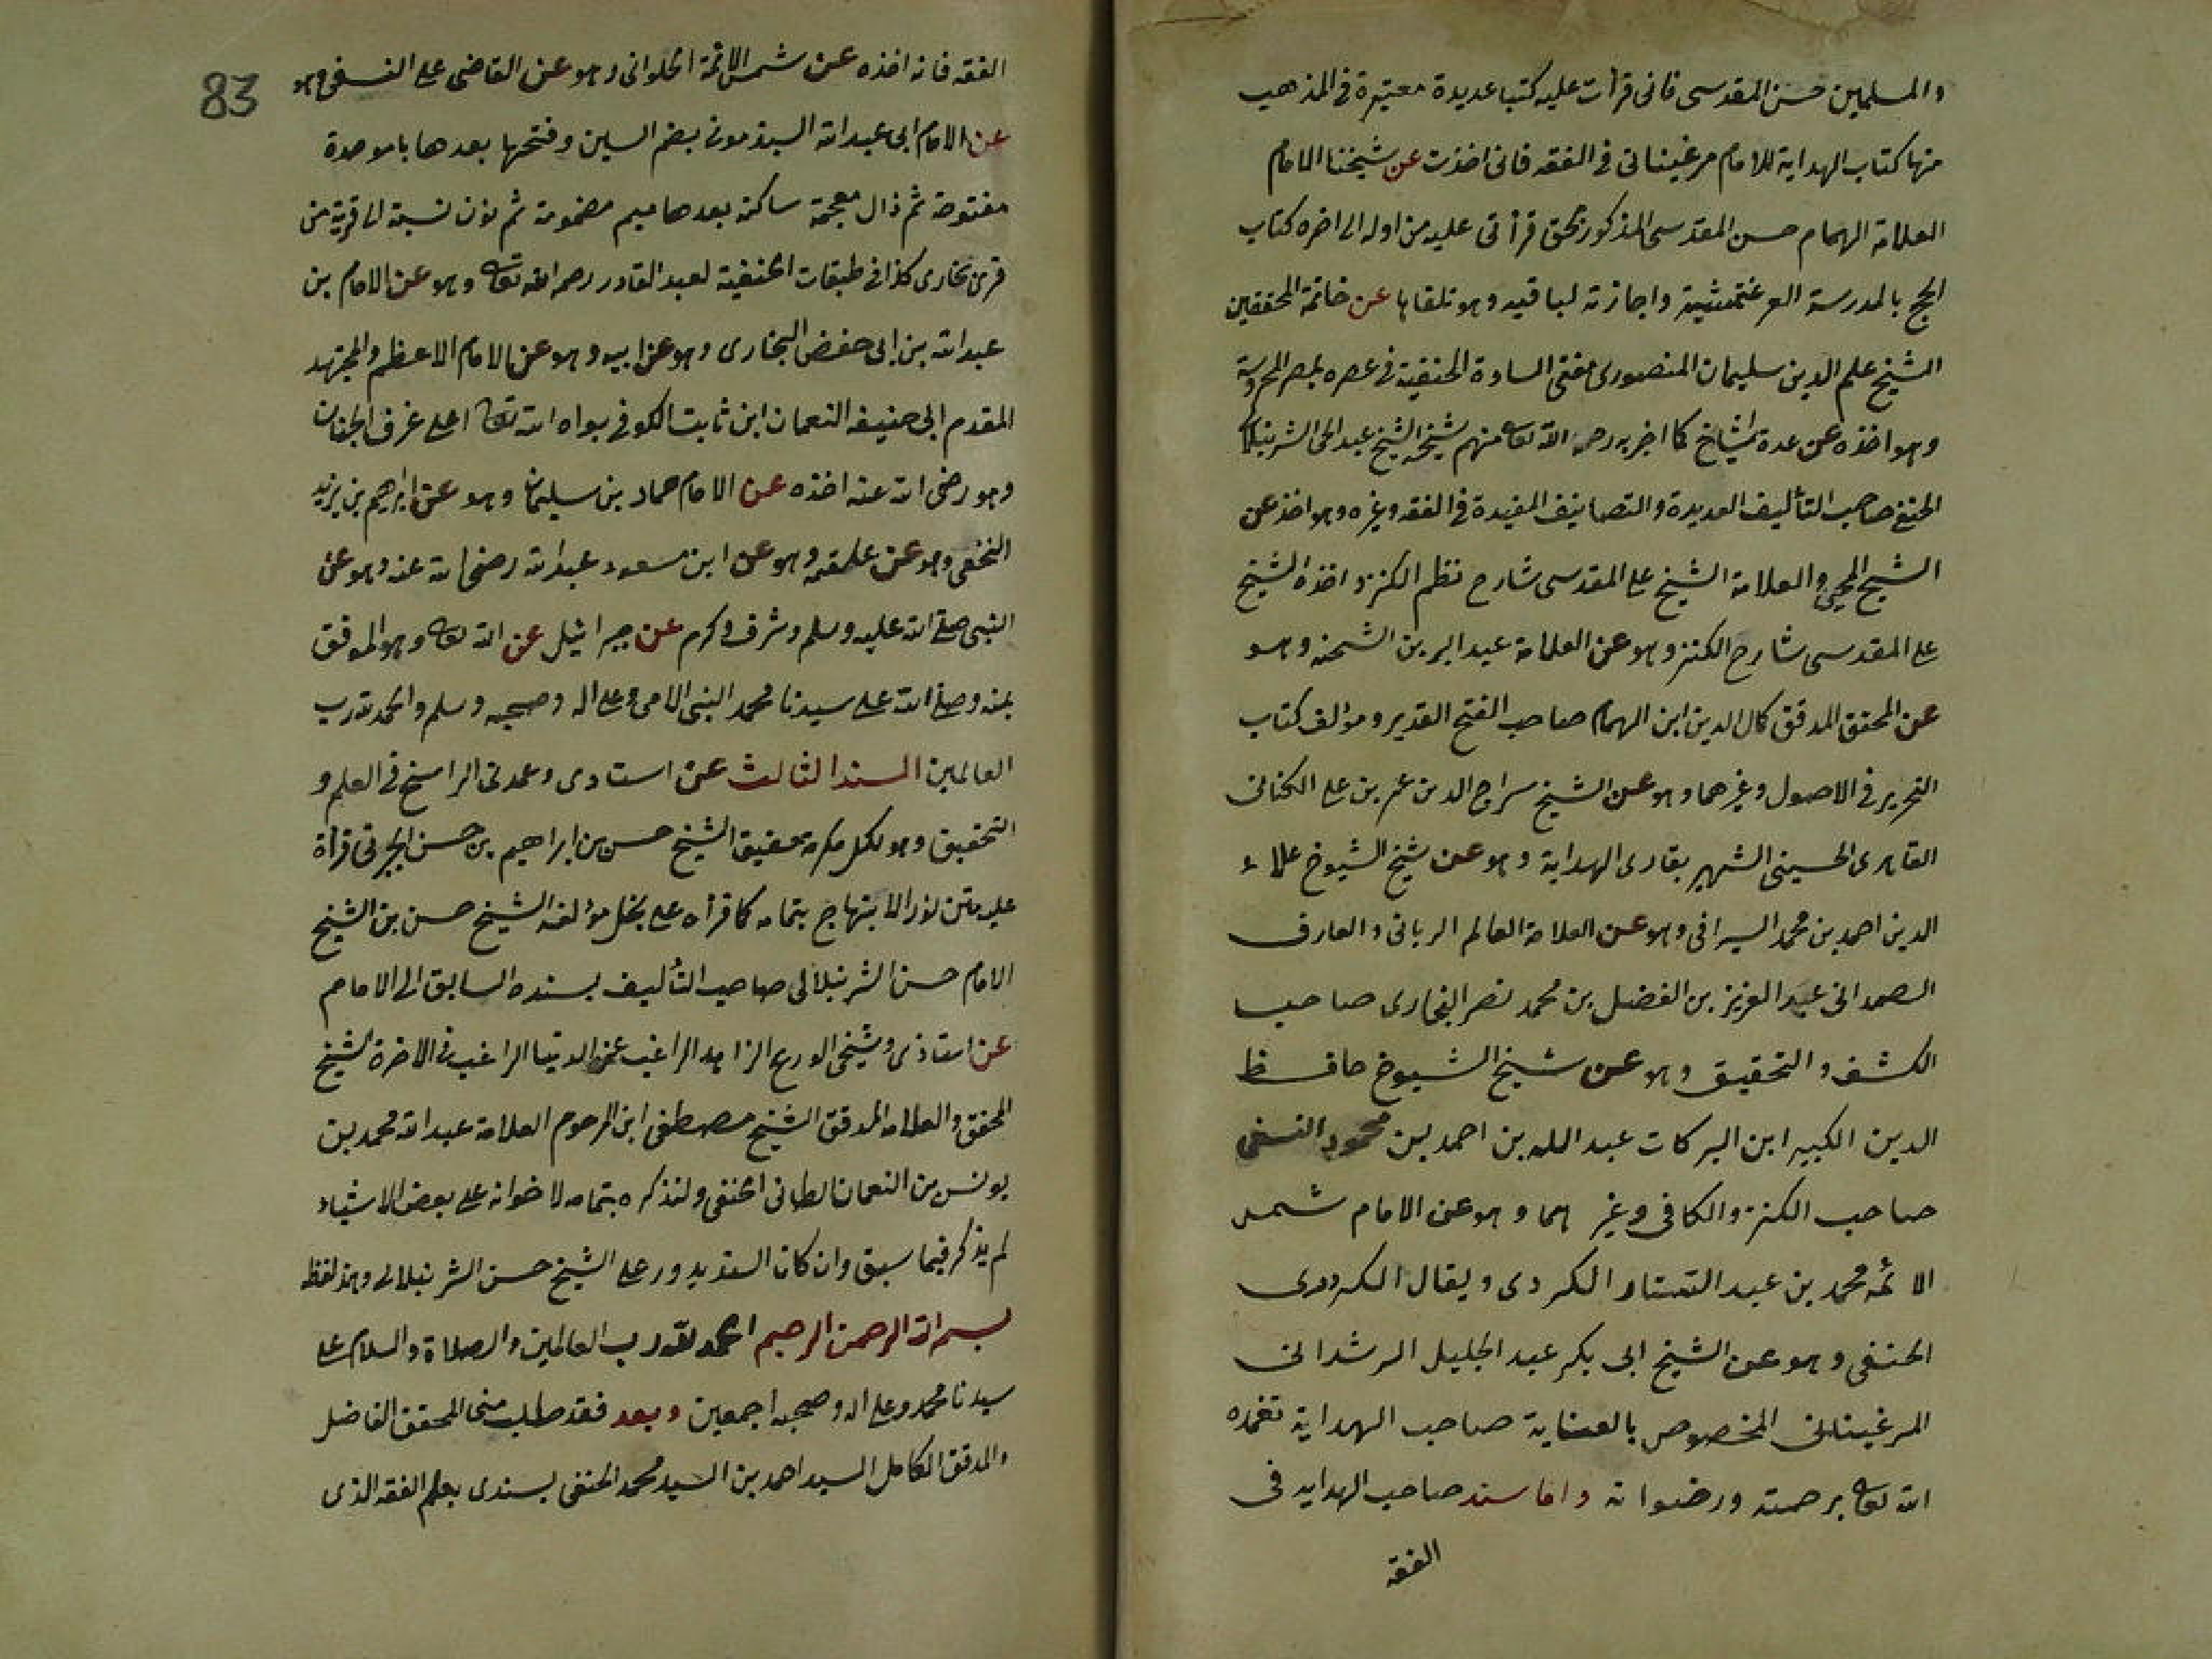 والمسلمين حسن المقدسى فانى قرأت عليه كتبا عديدة معتبرة فى المذهب
منها كتاب الهداية للامام مرغينانى فى الفقه فانى اخذت عن شيخنا الامام
العلامة الهمام حسن المقدسى المذكور بحق قرأتى عليه من اوله الى اخره كتاب
الحج بالمدرسة العرغتمشية واجازته لباقيه وهو تلقاها عن خاتمة المحققين
الشيخ علم الدين سليمان المنصورى مفتى السادة الحنفية فى عصره بمصر المحروسة
وهو اخذه عن عدة اشياخ كما اخبر به رحمه الله تعا منهم شيخه الشيخ عبد الحى الشرنبلا
الحنفى صاحب التأليف العديدة والتصانيف المفيدة فى الفقه وغيره وهو اخذ عن
الشيخ المحبى والعلامة الشيخ على المقدسى شارح نظم الكنز واخذه الشيخ
على المقدسى شارح الكنز وهو عن العلامة عبد البر بن الشحنه وهو
عن المحقق المدقق كمال الدين ابن الهمام صاحب الفتح القدير ومؤلف كتاب
التحرير فى الاصول وغيرهما وهو عن الشيخ سراج الدين عمر بن على الكنانى
القاهرى الحسينى الشهير بقارى الهداية وهو عن شيخ الشيوخ علاء
الدين احمد بن محمد السيرافى وهو عن العلامة العالم الربانى والعارف
الصمدانى عبد العزيز بن الفضل بن محمد نصر البخارى صاحب
الكشف والتحقيق وهو عن شيخ الشيوخ حافظ
الدين الكبير ابن البركات عبد الله بن احمد بن محمود النسفى
صاحب الكنز والكافى وغيرهما وهو عن الامام شمس
الائمه محمد بن عبد الستار الكردى ويقال الكردرى
الحنفى وهو عن الشيخ ابى بكر عبد الجليل الرشدانى
المرغينانى المخصوص بالعناية صاحب الهداية تغمده
الله تعا برحمته ورضوانه واما سند صاحب الهدايه فى
الفقه
83
الفقه فانه اخذه عن شمس الائمة الحلوانى وهو عن القاضى على النسفى وهو
عن الامام ابى عبد الله السبذمونى بضم السين وفتحها بعدها باموحدة
مفتوحة ثم ذال معجمة ساكنه بعدها ميم مضمومة ثم نون نسبة الى قرية من
قرى بخارى كذا فى طبقات الحنفية لعبد القادر رحمه الله تعا وهو عن الامام بن
عبد الله بن ابى حفص البخارى وهو عن ابيه وهو عن الامام الاعظم والمجتهد
المقدم ابى حنيفه النعمان ابن ثابت الكوفى بواه الله تعا اعلى غرف الجنان
وهو رضى الله عنه اخذه عن الامام حماد بن سليمان وهو عن ابراهيم بن يزيد
النخعى وهو عن علقمه وهو عن ابن مسعود عبد الله رضى الله عنه وهو عن
النبى صلى الله عليه وسلم وشرف وكرم عن جبرائيل عن الله تعا وهو الموفق
بمنه وصلى الله على سيدنا محمد النبى الامى وعلى اله وصحبه وسلم والحمد لله رب
العالمين السند الثالث عن استادى وعمدتى الراسخ فى العلم و
التحقيق وهو لكل مكرمة حقيق الشيخ حسن بن ابراهيم بن حسن الجبرتى قرأة
عليه متن نور الابتهاج بتمامه كما قرأه على نجل مؤلفه الشيخ حسن بن الشيخ
الامام حسن الشرنبلالى صاحب التأليف بسنده السابق الى الامام
عن استاذى وشيخى الورع الزاهد الراغب عن الدنيا الراغب فى الاخرة الشيخ
المحقق والعلامه المدقق الشيخ مصطفى ابن المرحوم العلامة عبد الله محمد بن
يونس بن النعمان الطائى الحنفى ولنذكره بتمامه لاحتوائه على بعض الاشياء
لم يذكر فيما سبق وان كان السند يدور على الشيخ حسن الشرنبلالى وهذ لفظه
بسم الله الرحمن الرحيم الحمد لله رب العالمين والصلاة والسلام على
سيدنا محمد وعلى اله وصحبه اجمعين وبعد فقد طلب منى المحقق الفاضل
والمدقق الكامل السيد احمد بن السيد محمد الحنفى بسندى بعلم الفقه الذى